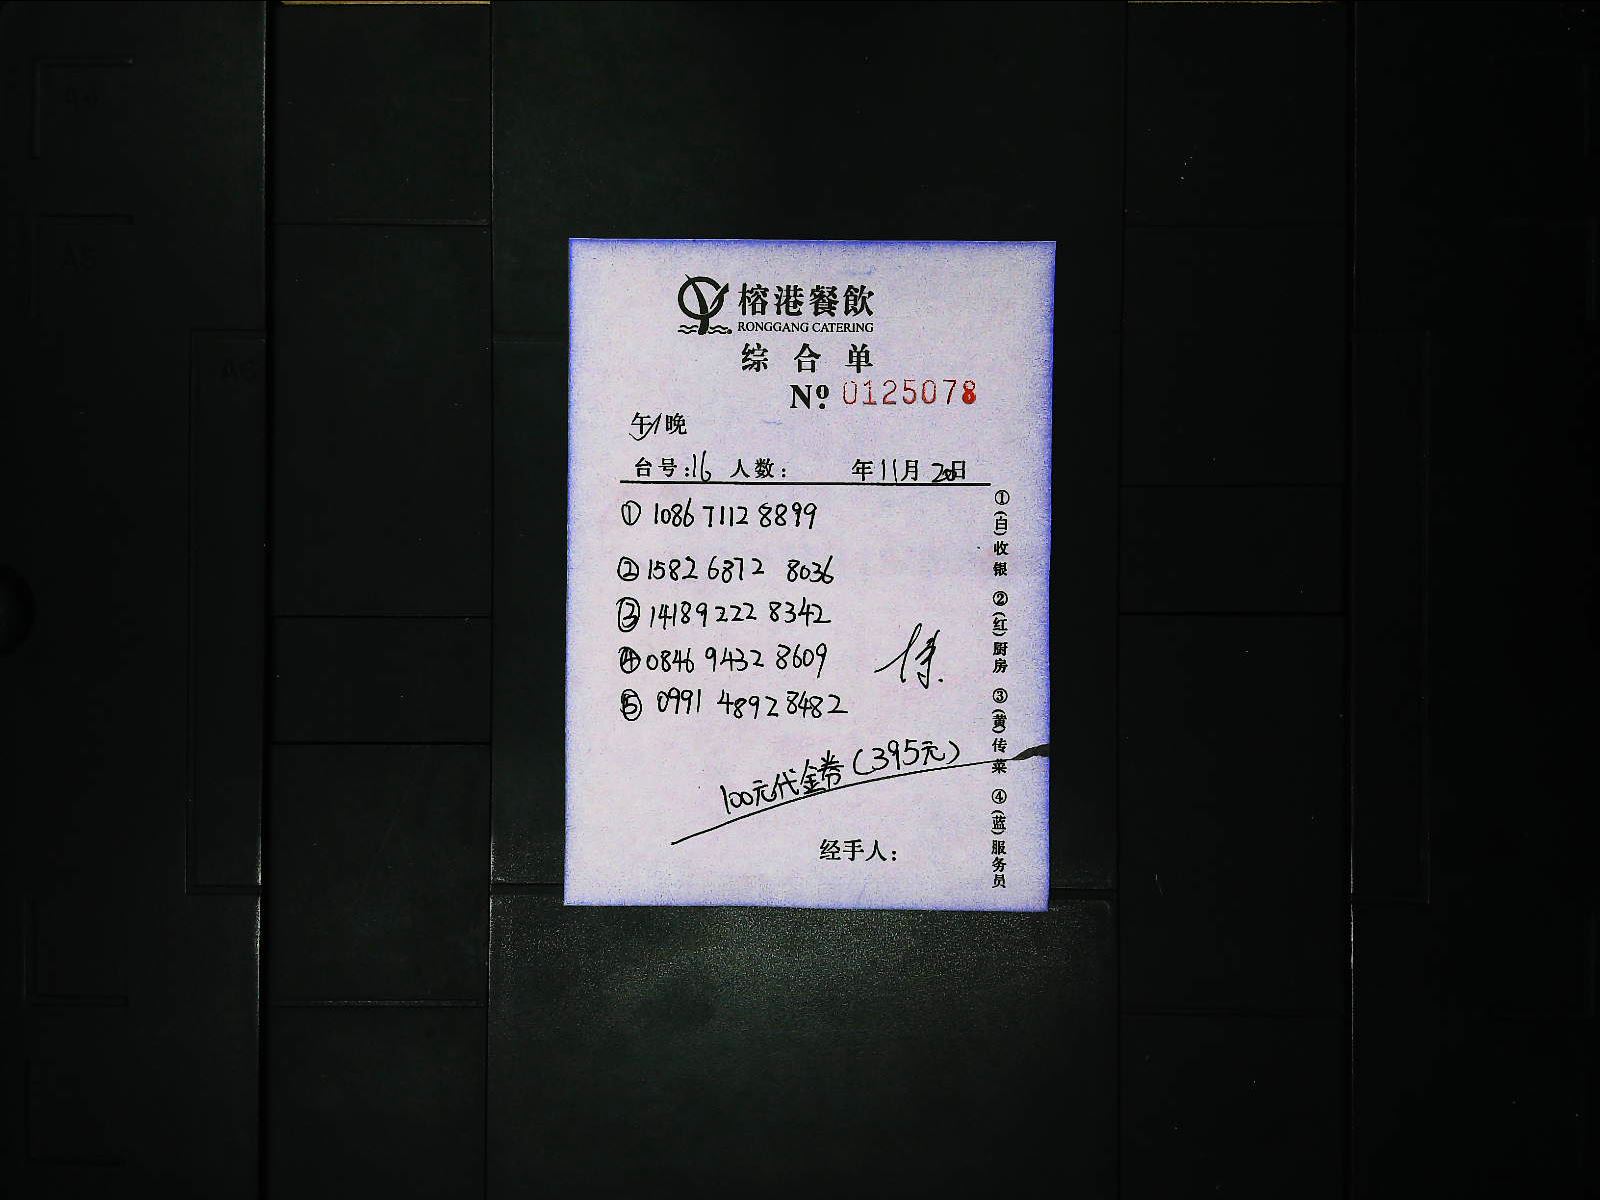 榕港餐飲
RONGGANG CATERING
综合单
Nº 0125078
午/晚
台号:16 人数: 年11月20日
① 1086 7112 8899
② 1582 6872 8036
③ 14189222 8342
④ 0846 9432 8609
⑤ 0991 4892 8482
100元代金券(395元)
经手人:
①(白)收银 ②(红)厨房 ③(黄)传菜 ④(蓝)服务员
A4
A5
A3